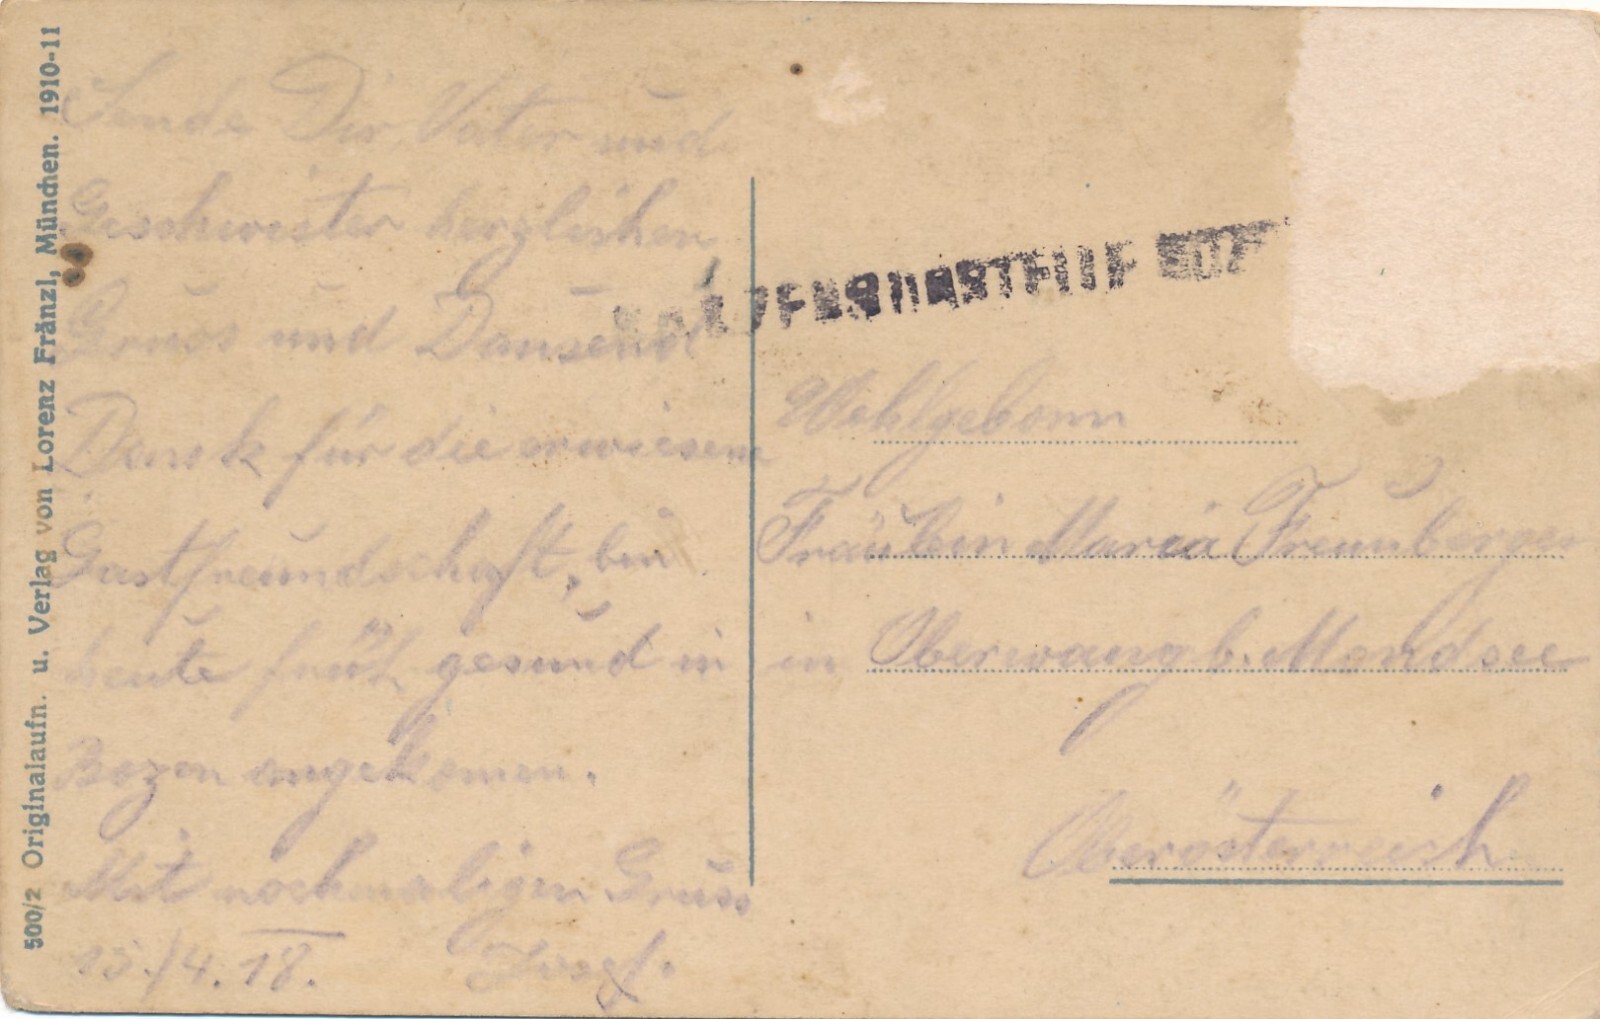 500/2 Originalaufn. u. Verlag von Lorenz Fränzl, München. 1910-11
Sende Dir, Vater und
Geschwister herzlichen
Gruss und Dausend
Dank für die erwiesene
Gastfreundschaft, bin
heute früh gesund in
Bozen angekomen.
Mit nochmaligen Gruss
15./4. 18. Josef.
Wohlgeborn
Fräulein Maria Freunberger
in Oberwang b. Mondsee
Oberösterreich